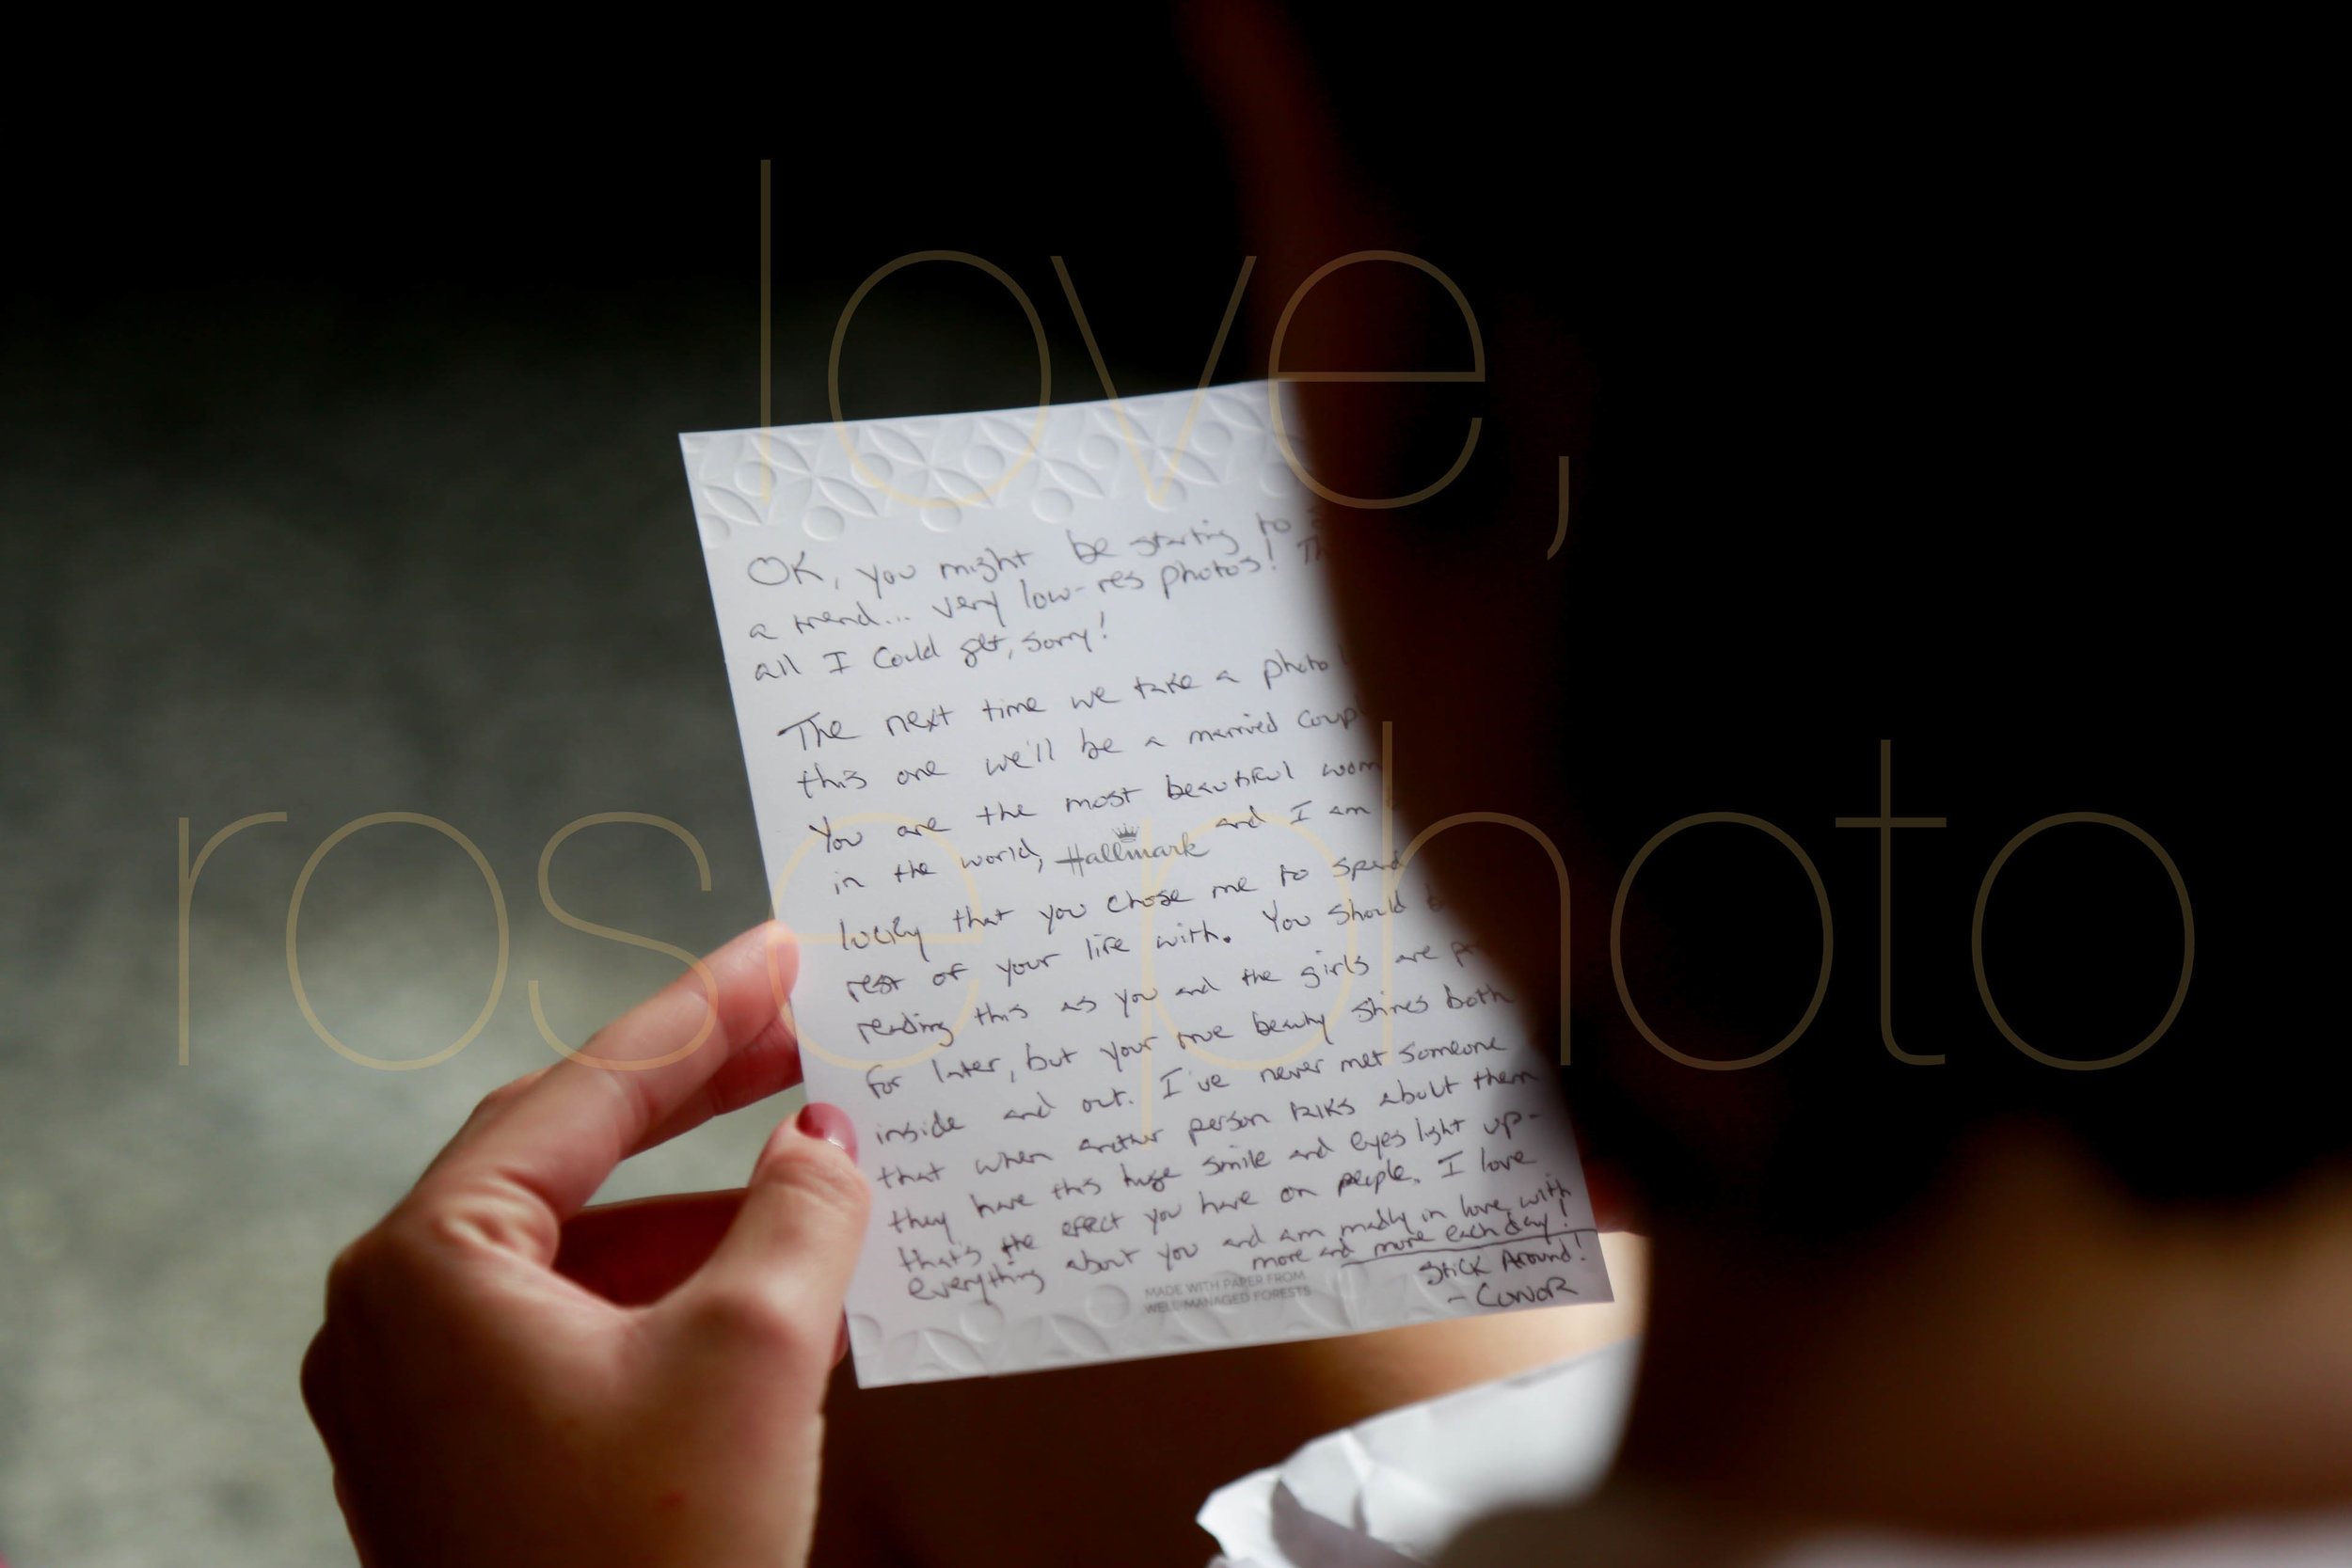 love,
rose photo
OK, you might be starting to
a trend... very low-res photos!
all I could get, sorry!
The next time we take a photo
this one we'll be a married
You are the most beautiful
in the world, Hallmark and I am
lucky that you chose me to spend
rest of your life with. You should
reading this as you and the girls are
for later, but your true beauty shines both
inside and out. I've never met someone
that when another person talks about them
they have this huge smile and eyes light up-
that's the effect you have on people. I love
everything about you and am madly in love with
more and more each day!
Stick Around!
- Conor
MADE WITH PAPER FROM
WELL-MANAGED FORESTS